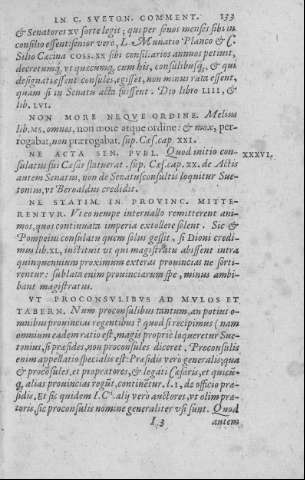 IN C. SVETON. COMMENT. 133
& Senatores XV sorte legit; qui per senos menses sibi in
consilio essent: senior verò, L. Munatio Planco & C.
Silio Cæcina COSS. XX sibi consiliarios annuos petiuit,
decretumq́; vt quæcunq; cum his, consulibusq́;, & qui
designati essent consules, egisset, non minus rata essent,
quàm si in Senatu acta fuissent. Dio libro LIIII, &
lib. LVI.
NON MORE NEQVE ORDINE. Melius
lib. MS. omnas, non more atque ordine: & mox, per-
rogabat, non prærogabat. sup. Cæs. cap. XXI.
NE ACTA SEN. PVBL. Quod initio con- XXXVI.
sulatus sui Cæsar statuerat. sup. Cæs. cap. XX. de Actis
autem Senatus, non de Senatusconsultis loquitur Sue-
tonius, vt Beroaldus credidit.
NE STATIM IN PROVINC. MITTE-
RENTVR. Vt eo nempe interuallo remitterent ani-
mos, quos continuata imperia extollere solent. Sic &
Pompeius consulatu quem solus gessit, si Dioni credi-
mus lib. XL, instituit vt qui magistratu abissent intra
quinquennium proximum exteras prouincias ne sorti-
rentur: sublata enim prouinciarum spe, minus ambi-
bant magistratus.
VT PROCONSVLIBVS AD MVLOS ET
TABERN. Num proconsulibus tantum, an potius o-
mnibus prouincias regentibus? quod si recipimus (nam
omnium eadem ratio est, magis propriè loqueretur Sue-
tonius, si præsides, non proconsules diceret. Proconsulis
enim appellatio specialis est: Præsidis verò generalis; qua
& proconsules, et propræetores, & legati Cæsaris, et quicūq́;
alias prouincias regūt, continētur. l. 1. de officio præ-
sidis. Et sic quidem I. C. alij verò auctores, vt olim præ-
toris, sic proconsulis nomine generaliter vsi sunt. Quod
I 3 autem